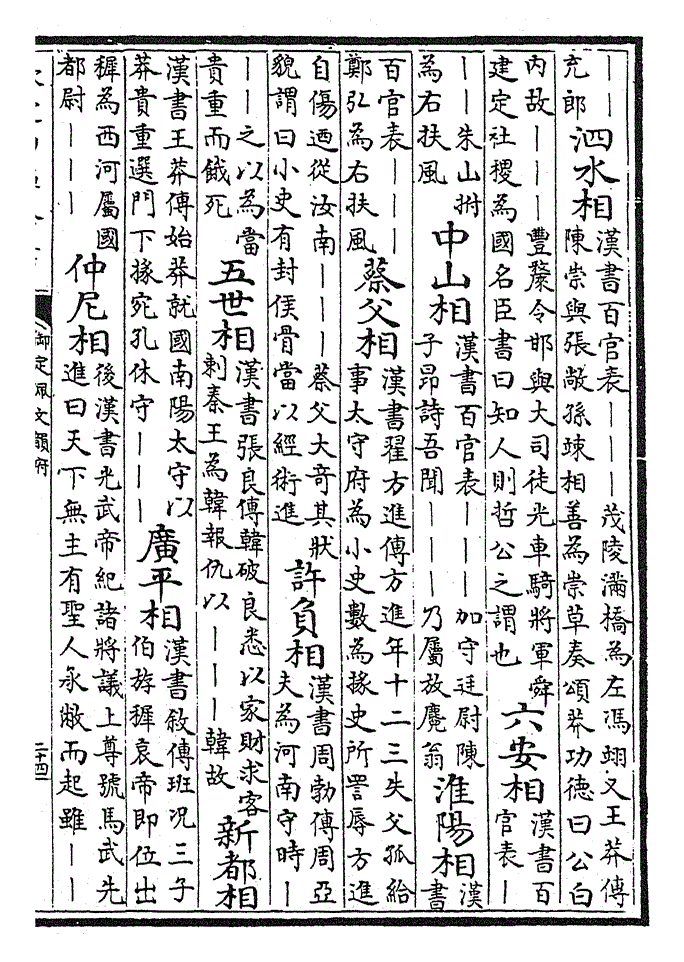 ｜｜
充郎
泗水相
漢書百官表｜｜｜茂陵滿橋為左馮翊又王莽傳
陳崇與張敞孫竦相善為崇草奏頌莽功德曰公白
內故｜｜｜豐釐令邯與大司徒光車騎將軍舜
建定社稷為國名臣書曰知人則哲公之謂也
六安相
漢書百
官表｜
｜｜朱山拊
為右扶風
中山相
漢書百官表｜｜｜加守廷尉陳
子昂詩吾聞｜｜｜乃屬放麑翁
淮陽相
漢
書
百官表｜｜｜
鄭弘為右扶風
蔡父相
漢書翟方進傳方進年十二三失父孤給
事太守府為小史數為掾史所詈辱方進
自傷迺從汝南｜｜｜蔡父大奇其狀
貌謂曰小史有封侯骨當以經術進
許負相
漢書周勃傳周亞
夫為河南守時｜
｜｜之以為當
貴重而餓死
五世相
漢書張良傳韓破良悉以家財求客
刺秦王為韓報仇以｜｜｜韓故
新都相
漢書王莽傳始莽就國南陽太守以
莽貴重選門下掾宛孔休守｜｜｜
廣平相
漢書敘傳班況三子
伯斿穉哀帝即位出
穉為西河屬國
都尉｜｜｜
仲尼相
後漢書光武帝紀諸將議上尊號馬武先
進曰天下無主有聖人承敝而起雖｜｜
御定佩文韻府
二十四